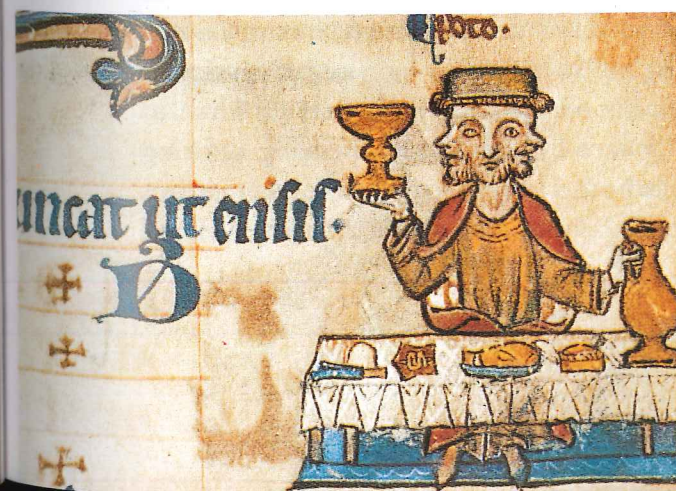 Poto.
uncat ut ensis.
D